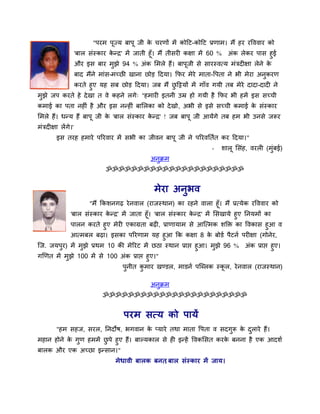 "परम पूज्य बापू जी के चरणों में कोटि-कोटि प्रणाम। मैं हर रविवार को
'बाल संस्कार केन्द्र' में जाती हूँ। मैं तीसरी कक्षा में 60 % अंक लेकर पास हुई
और इस बार मुझे 94 % अंक मिले हैं। बापूजी से सारस्वत्य मंत्रदीक्षा लेने के
बाद मैंने मांस-मच्छी खाना छोड़ दिया। फिर मेरे माता-पिता ने भी मेरा अनुकरण
करते हुए यह सब छोड़ दिया। जब मैं छुट्टियों में गाँव गयी तब मेरे दादा-दादी ने
मुझे जप करते हे देखा त वे कहने लगेः "हमारी इतनी उम्र हो गयी है फिर भी हमें इस सच्ची
कमाई का पता नहीं है और इस नन्हीं बालिका को देखो, अभी से इसे सच्ची कमाई के संस्कार
मिले हैं। धन्य हैं बापू जी के 'बाल संस्कार केन्द्र' ! जब बापू जी आयेंगे तब हम भी उनसे जरूर
मंत्रदीक्षा लेंगे।'
इस तरह हमारे परिवार में सभी का जीवन बापू जी ने परिवर्तित कर दिया।"
- शालू सिंह, वरली (मुंबई)
अनुक्रम
ૐૐૐૐૐૐૐૐૐૐૐૐૐૐૐૐૐૐૐૐૐૐૐૐ
मेरा अनुभव
"मैं किशनगढ़ रेनवाल (राजस्थान) का रहने वाला हूँ। मैं प्रत्येक रविवार को
'बाल संस्कार केन्द्र' में जाता हूँ। 'बाल संस्कार केन्द्र' में सिखाये हुए नियमों का
पालन करते हुए मेरी एकाग्रता बढ़ी, प्राणायाम से आत्मिक शक्ति का विकास हुआ व
आत्मबल बढ़ा। इसका परिणाम यह हुआ कि कक्षा 8 के बोर्ड पैटर्न परीक्षा (गोनेर,
जि. जयपुर) में मुझे प्रथम 10 की मेरिट में छठा स्थान प्राप्त हुआ। मुझे 96 % अंक प्राप्त हुए।
गणित में मुझे 100 में से 100 अंक प्राप्त हुए।"
पुनीत कुमार खण्डल, मार्डन पब्लिक स्कूल, रेनवाल (राजस्थान)
अनुक्रम
ૐૐૐૐૐૐૐૐૐૐૐૐૐૐૐૐૐૐૐૐૐૐૐૐ
परम सत्य को पायें
"हम सहज, सरल, निर्दोष, भगवान के प्यारे तथा माता पिता व सदगुरू के दुलारे हैं।
महान होने के गुण हममें छुपे हुए हैं। बाल्यकाल से ही इन्हें विकसित करके बनना है एक आदर्श
बालक और एक अच्छा इन्सान।"
मेधावी बालक बनत बाल संस्कार में जाय।